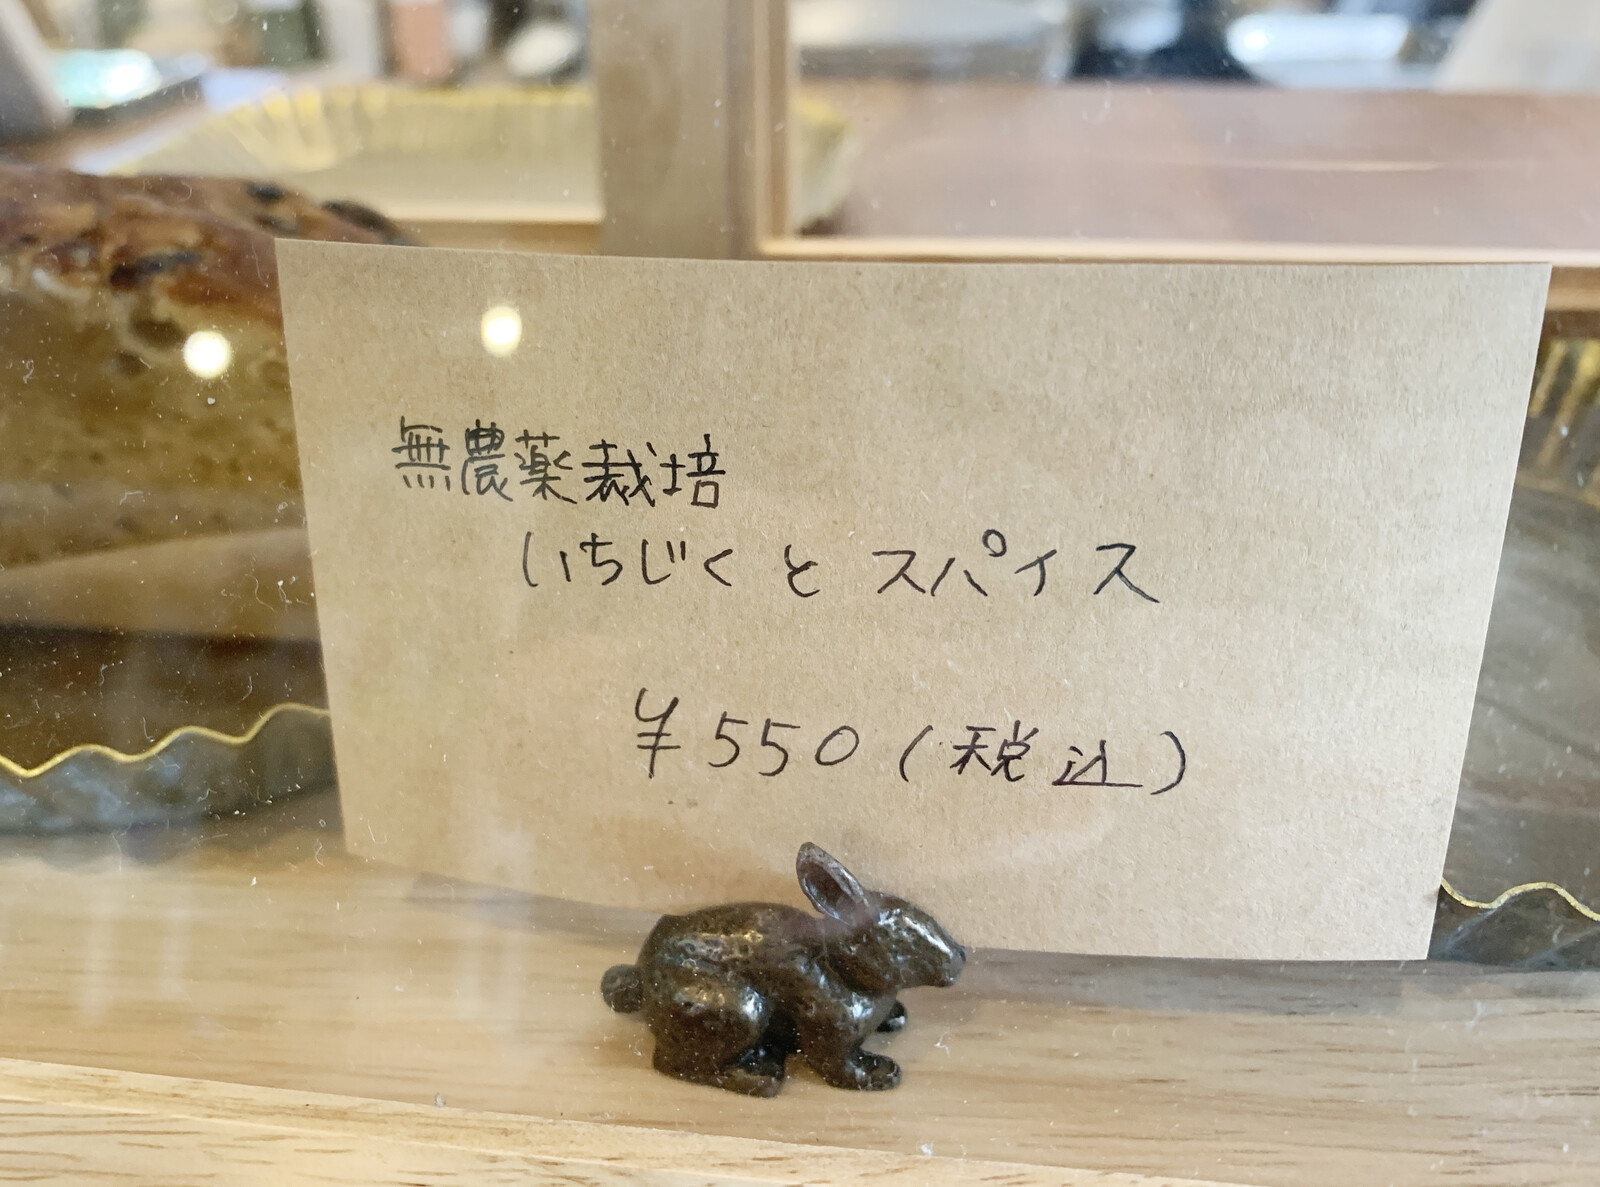 無農薬栽培
いちじく と スパイス
¥550(税込)